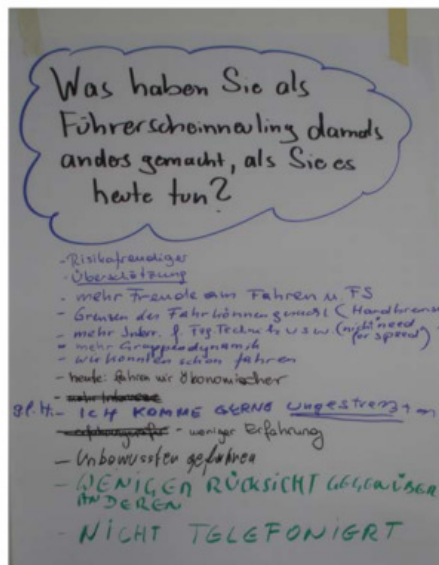 Was haben Sie als
Führerscheinneuling damals
anders gemacht, als Sie es
heute tun?
- Risikofreudiger
- Überschätzung
- mehr Freude am Fahren u. FS
- Grenzen des Fahrkönnens (Handbremse
- mehr Interr. f. Fzg. Technik usw. (nicht need
for speed)
- mehr Gruppendynamik
- wir konnten schon fahren
- heute: fahren wir ökonomischer
- mehr Interesse
- ICH KOMME GERNE ungestresst an
- weniger Erfahrung
- Unbewusster gefahren
- WENIGER RÜCKSICHT GEGENÜBER
ANDEREN
- NICHT TELEFONIERT